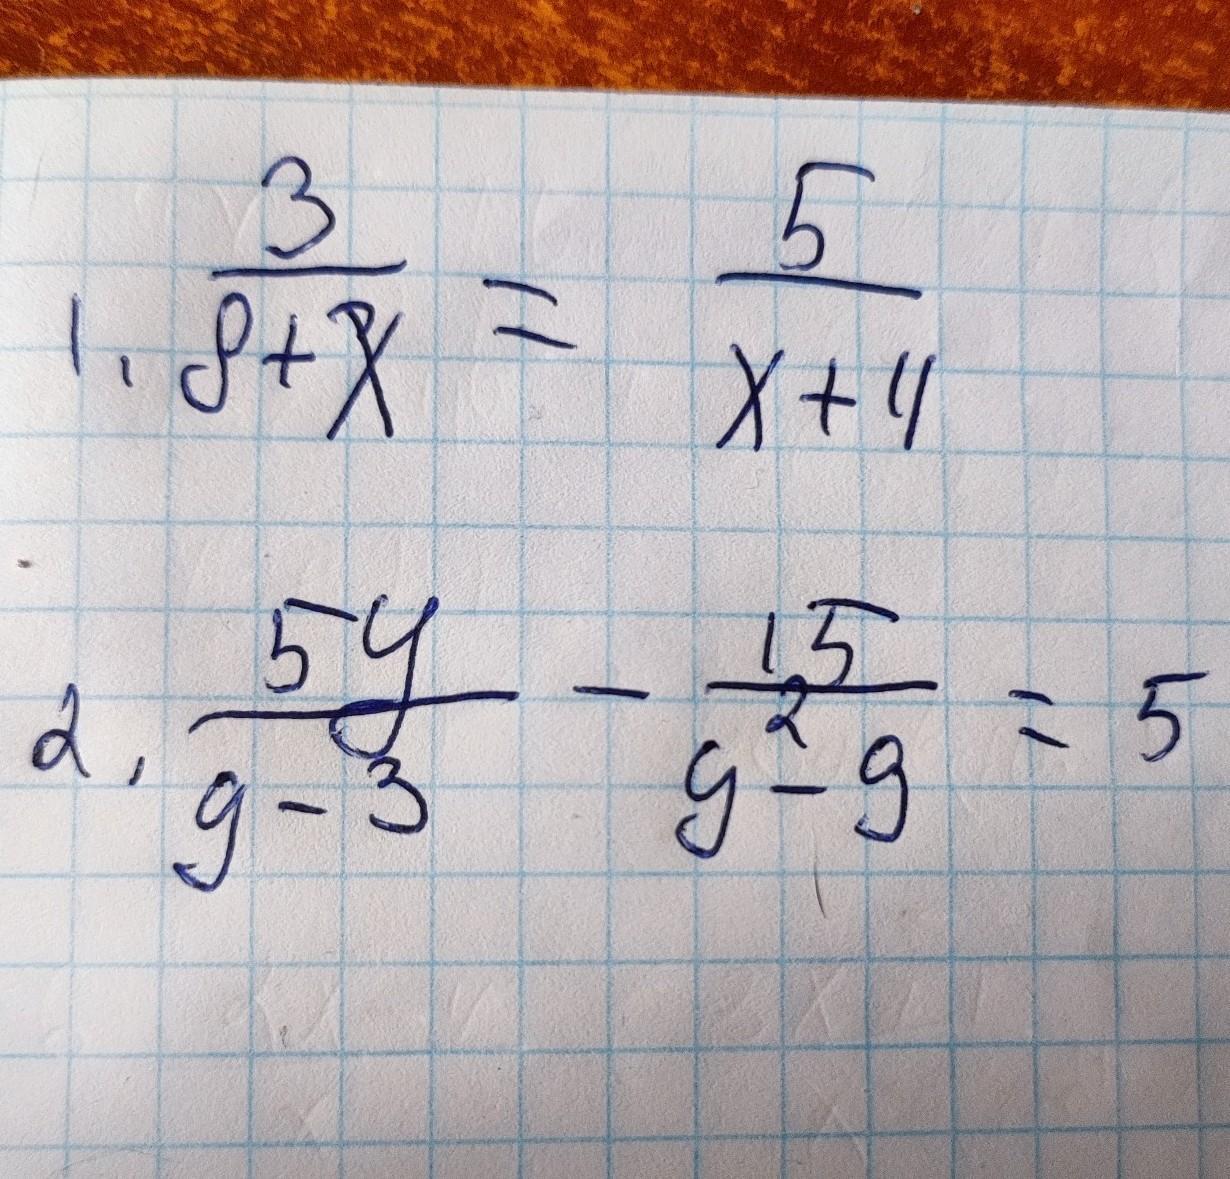 1. 3/(8+x) = 5/(x+4)
2. 5y/(y-3) - 15/(y²-9) = 5